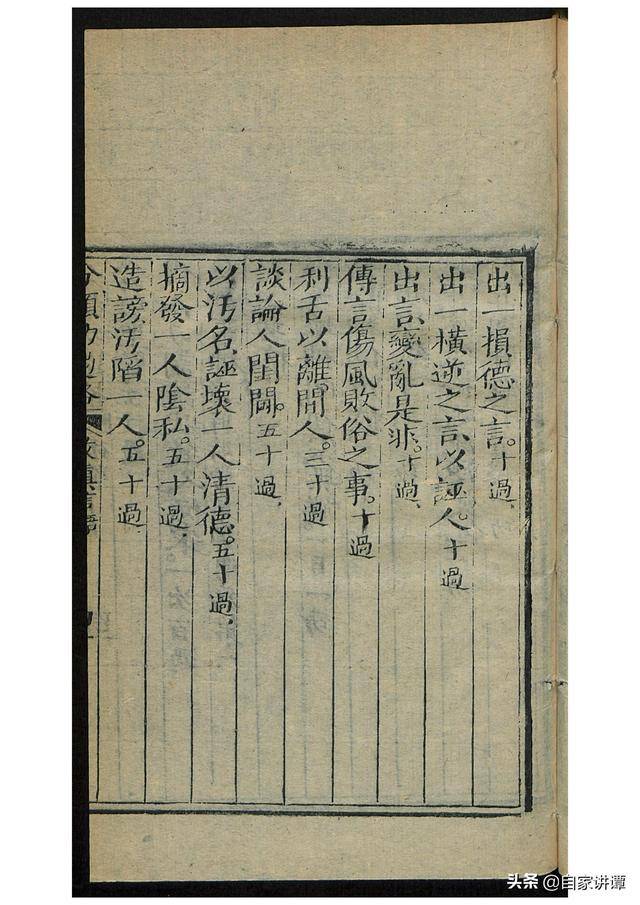 出一損德之言。十過、
出一橫逆之言以誣人。十過
出言變亂是非。十過、
傳言傷風敗俗之事。十過
利舌以離間人。三十過
談論人閨閫。五十過
以汚名誣壞一人清德。五十過、
摘發一人陰私。五十過、
造謗汚陷一人。五十過、
分類功過格
头条 @自家讲谭